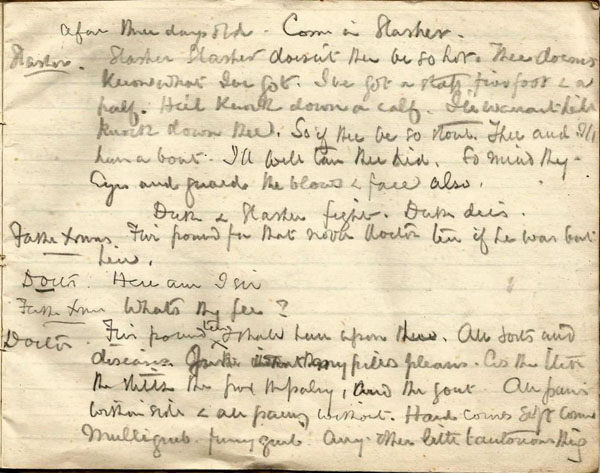 afore three days old. Come in Slasher.
Slasher. Slasher Slasher doesn't thee be so hot. Thee doesns
know what I've got. I've got a staff five foot & a
half. He'll knock down a calf. I'll warrant he'll
knock down thee. So if thee be so stout. Thee and I'll
have a bout. I'll well tan thee hid. So mind thy
Eyes and guard the blows & face also.
Duke & Slasher fight. Duke dies.
Father Xmas Five pound for that noble doctor ten if he was but
here.
Doctor. Here am I sir
Father Xmas Whats thy fee?
Doctor. Five pound ten I shall have upon thee. All sorts and
diseases my pills pleans. As the
the stitch the pox the palsy, and the gout All pains
within side & all pains without. Hard corns soft corns
Multigrub. funnygrub. Any other little thing